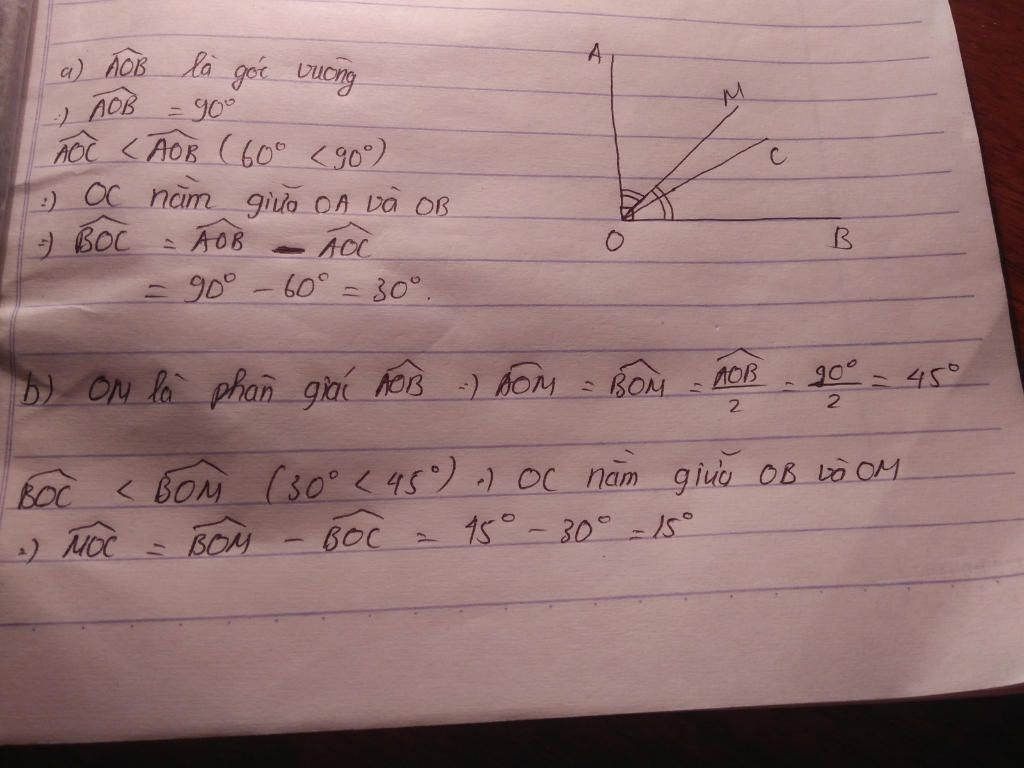 a) AOB là góc vuông
=) AOB = 90°
AOC < AOB (60° < 90°)
=) OC nằm giữa OA và OB
=) BOC = AOB - AOC
= 90° - 60° = 30°.
A
M
C
O
B
b) OM là phân giác AOB =) AOM = BOM = AOB/2 = 90°/2 = 45°
BOC < BOM (30° < 45°) =) OC nằm giữa OB và OM
=) MOC = BOM - BOC = 45° - 30° = 15°